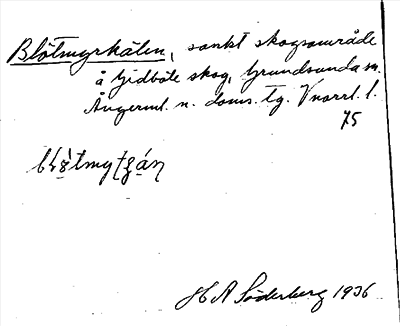 Blötmyrkälen, sankt skogsområde
å Gidböle skog, Grundsunda sn.
Ångerml. n. doms. tg. Vnorrl. l.
75
H A Söderberg 1936